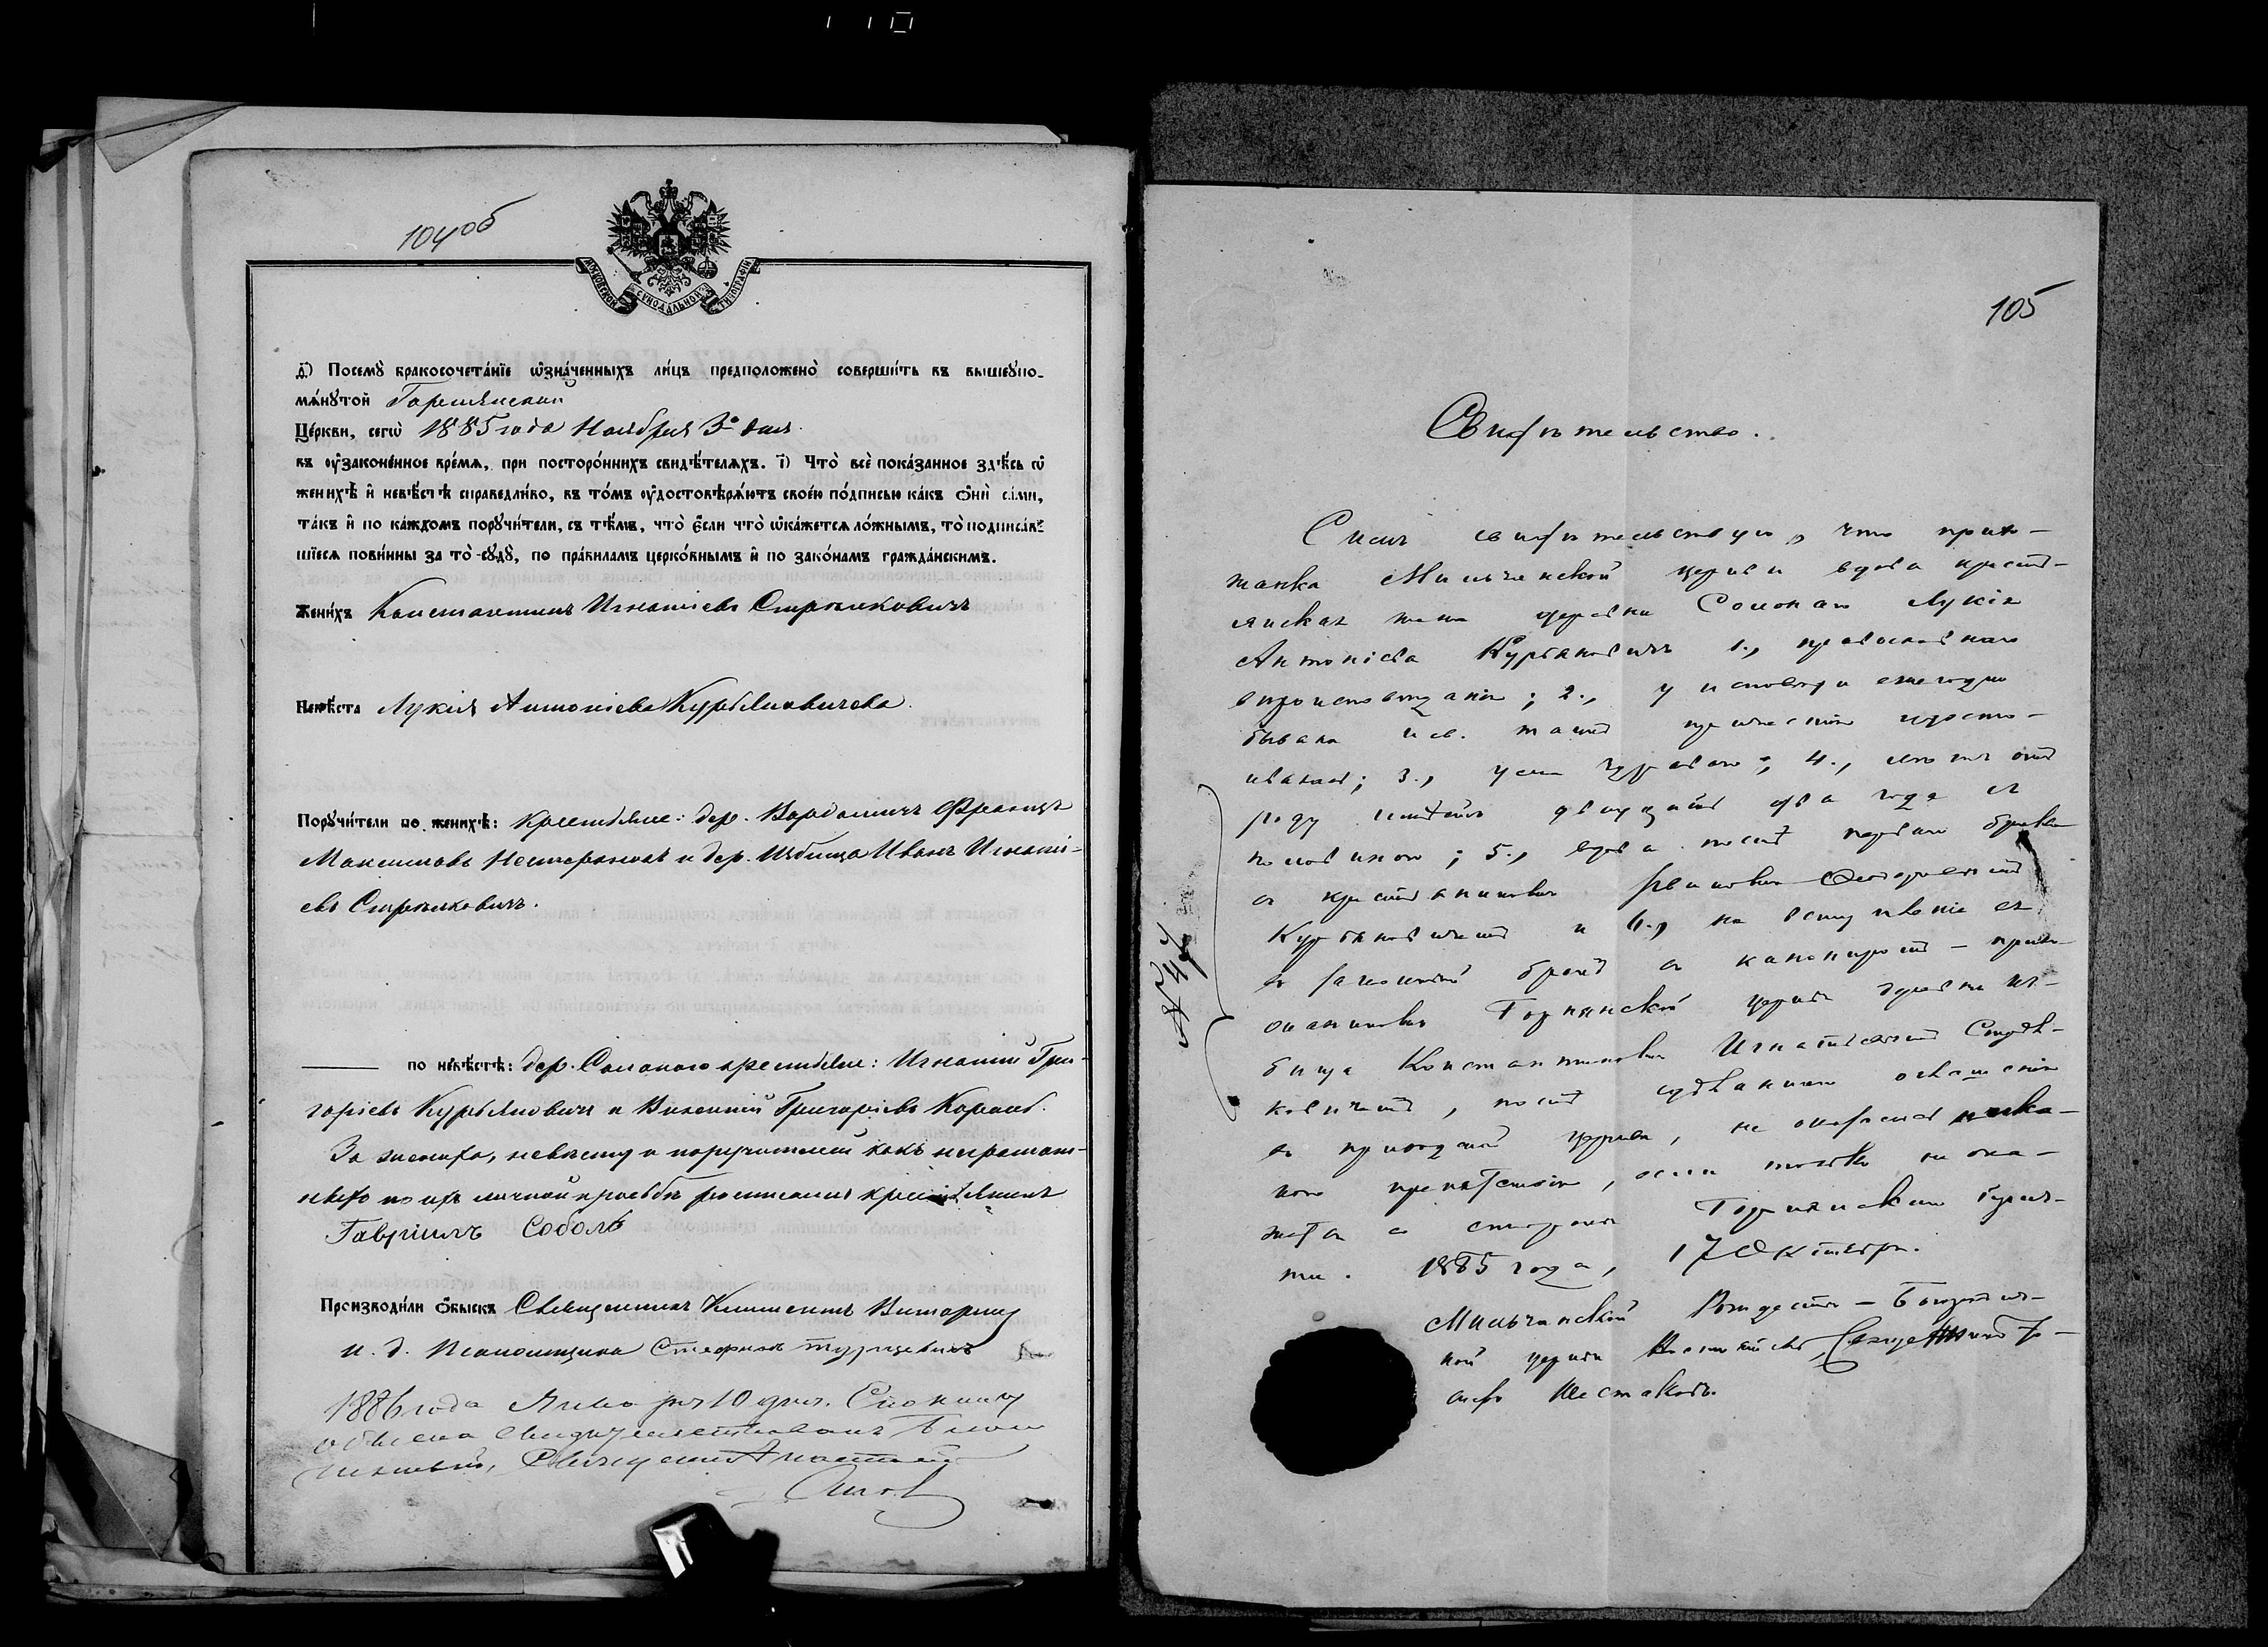 104 об
МОСКОВСКОЙ СѴНОДАЛЬНОЙ ТИПОГРАФІИ
д҃) Посемꙋ̀ бракосочета́нїе ѡ҆зна́ченныхъ ли́цъ предположено̀ соверши́ть въ вышеꙋпо-
мѧ́нꙋтой Горнянской
Це́ркви, сегѡ̀ 1885 года Ноября 3го дня.
въ ᲂу҆зако́ненное вре́мѧ, при посторо́ннихъ свидѣ́телѧхъ. і҃) Что̀ всѐ пока́занное здѣ́сь ѡ҆
женихѣ̀ и҆ невѣ́стѣ справедли́во, въ то́мъ ᲂу҆достовѣрѧ́ютъ свое́ю по́дписью ка́къ ѻ҆нѝ са́ми,
та́къ и҆ по ка́ждомъ порꙋчи́тели, съ тѣ́мъ, что̀ є҆́сли что̀ ѡ҆ка́жетсѧ ло́жнымъ, то̀ подписа́в-
шїесѧ пови́нны за то̀ сꙋдꙋ̀, по пра́виламъ церко́внымъ и҆ по зако́намъ гражда́нскимъ.
Жени́хъ Константинъ Игнатіевъ Стрѣлковичъ
Невѣ́ста Лукія Антоніева Курьяновичева.
Порꙋчи́тели по женихѣ̀: крестьяне: дер. Вардомичъ Францъ
Максимовъ Нестерёнокъ и дер. Избища Иванъ Игнаті-
евъ Стрѣлковичъ.
по невѣ́стѣ: дер. Солоного крестьяне: Игнатій Гри-
горіевъ Курьяновичъ и Викентій Григоріевъ Коранъ.
За жениха, невѣсту и поручителей какъ неграмот-
ныхъ по ихъ личной просьбѣ росписался крестьянинъ
Гавріилъ Соболь
Производи́ли ѻ҆́быскъ Священникъ Климентъ
и. д. Псаломщика Стефанъ Турцевичъ
1886 года Января 10 дня.
обыска свидѣтельствовалъ
Священникъ
105
Свидѣтельство.
Симъ свидѣтельствую, что прихо-
жанка Мильчанской церкви вдова кресть-
янская жена деревни Солонаго Лукія
Антоніева Курьяновичъ 1., православнаго
вѣроисповѣданія; 2., у исповѣди ежегодно
бывала и св. таинъ причастія удосто-
ивалась; 3., ума здраваго; 4., лѣтъ отъ
роду имѣетъ двадцать два года съ
половиною; 5., вдова послѣ перваго брака
съ крестьяниномъ
Курьяновичемъ и 6., на вступленіе ея
въ законный бракъ съ канониромъ - прихо-
жаниномъ Горнянской церкви деревни Из-
бища Константиномъ Игнатьевымъ Стрѣл-
ковичемъ, послѣ сдѣланнаго оглашенія
въ приходской церкви, не оказалось ника-
кого препятствія, если только не ока-
жется со стороны Горнянскаго прич-
та. 1885 года, 17 Октября.
Мильчанской Рождество - Богородич-
ной церкви Настоятель, Священникъ Іо-
сифъ Шестаковъ.